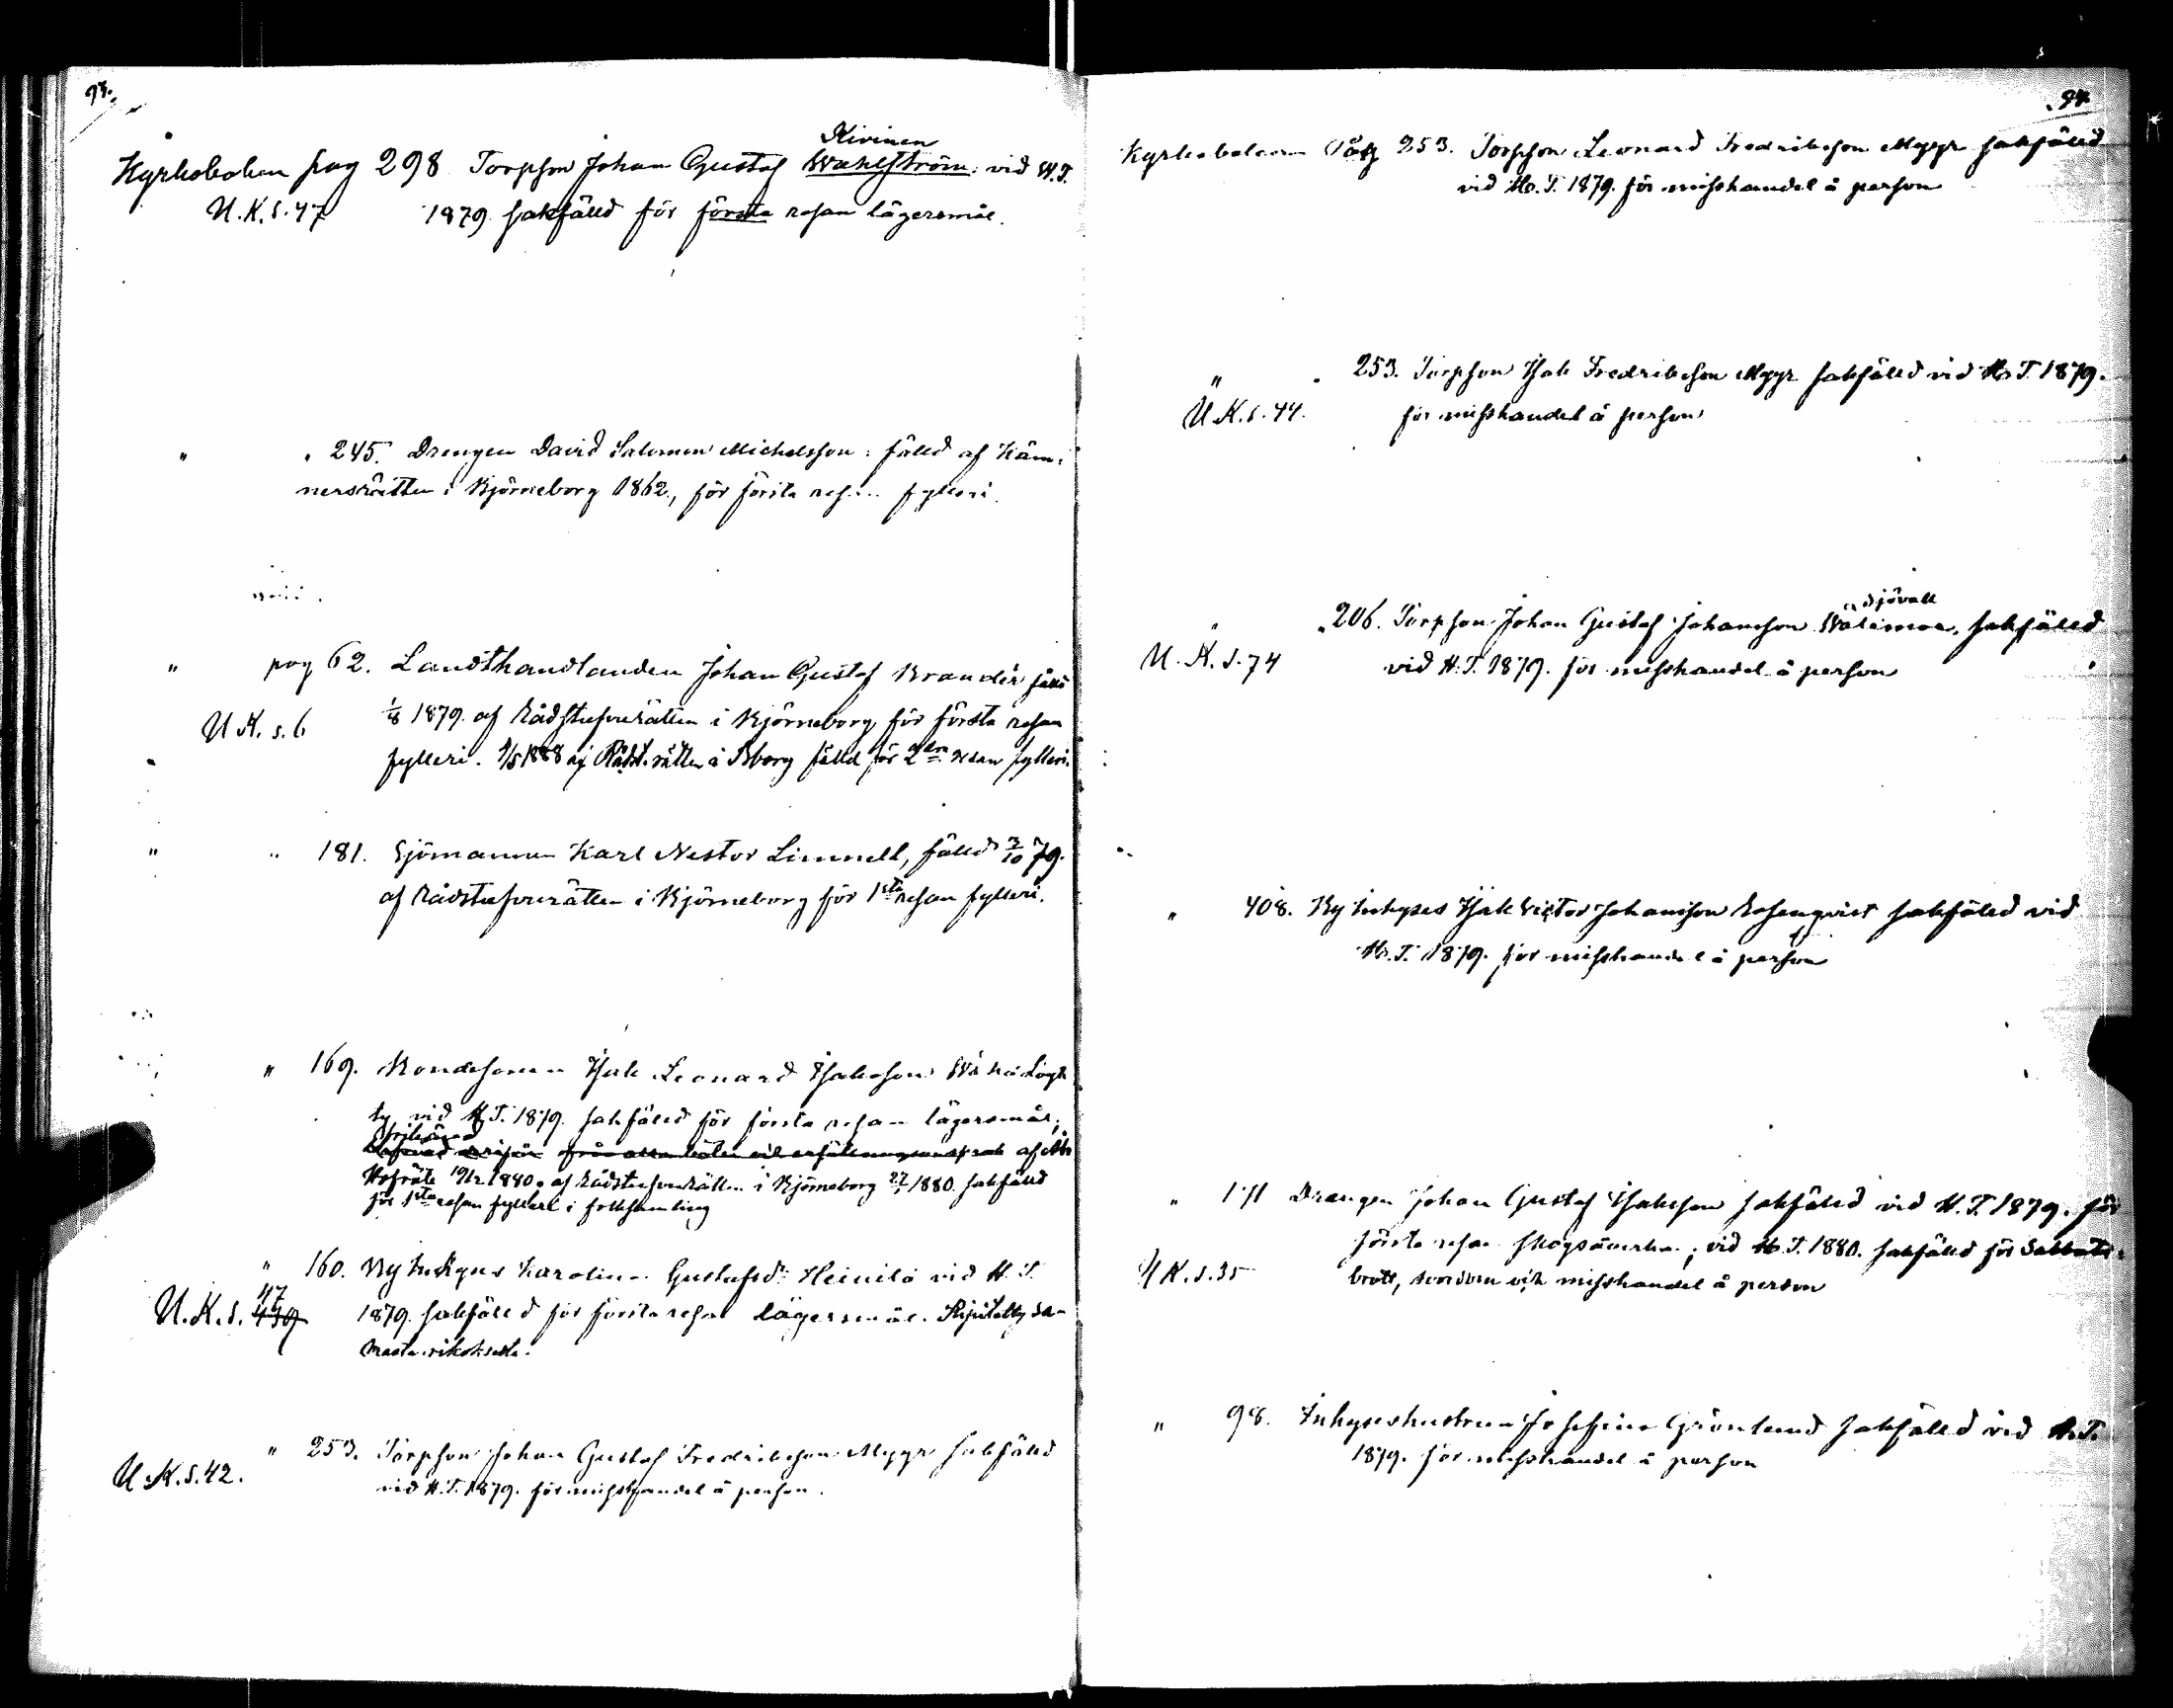 93.
Kivinen
Kyrkoboken pag 298 Torpson Johan Gustaf Wahlström: vid W.T.
U.K.s.47 1879 sakfälld för första resan lägersmål.
" " 245. Drengen David Salomon Michelsson: fälld af Käm-
nersrätten i Björneborg 1862, för första resan fylleri.
" pag 62. Landthandlanden Johan Gustaf Brandér fälld
U.K. s. 6 1/8 1879 af Rådstufvurätten i Björneborg för första resan
fylleri. 9/5 1888 af Rådst.rätten i Bborg fälld för 2dra resan fylleri.
" " 181. Sjömannen Karl Nestor Linnell, fälld 3/10 79.
af Rådstufvurätten i Björneborg för 1sta resan fylleri.
" 169. Bondesonen Isak Leonard Isaksson
vid H.T. 1879. sakfälld för första resan lägersmål;
Frikänd
af Åbo
Hofrätt 19/2 1880. af Rådstufvurätten i Björneborg 27/1 1880. sakfälld
för 1sta resan fylleri i folksamling
" 160. By inhyses Karolina Gustafsd: Heinilä vid H.T.
47
U.K.s. 439 1879. sakfälld för första resan lägersmål. Ripitetty sa-
masta rikoksesta.
" 253. Torpson Johan Gustaf Fredriksson Myyr sakfälld
U.K.s.42. vid H.T. 1879. för misshandel å person.
94.
Kyrkoboken Pag 253. Torpson Leonard Fredriksson Myyr sakfälld
vid Ho.T. 1879. för misshandel å person
" " 253. Torpson Isak Fredriksson Myyr sakfälld vid Ho.T. 1879.
U.K.s.44. för misshandel å person
" " 206. Torpson Johan Gustaf Johansson Wälimaa, sakfälld
U.K.s.74 vid H.T. 1879. för misshandel å person
" 408. By inhyses Isak Victor Johansson Rosenqvist sakfälld vid
Ho.T. 1879. för misshandel å person
" 171 Drengen Johan Gustaf Isaksson sakfälld vid H.T. 1879. för
första resan skogsåverkan; vid Ho.T. 1880. sakfälld för Sabbats-
U.K.s.35 brott, svordom och misshandel å person
" 98. Inhyseshustrun Josefina Grönlund sakfälld vid H.T.
1879. för misshandel å person